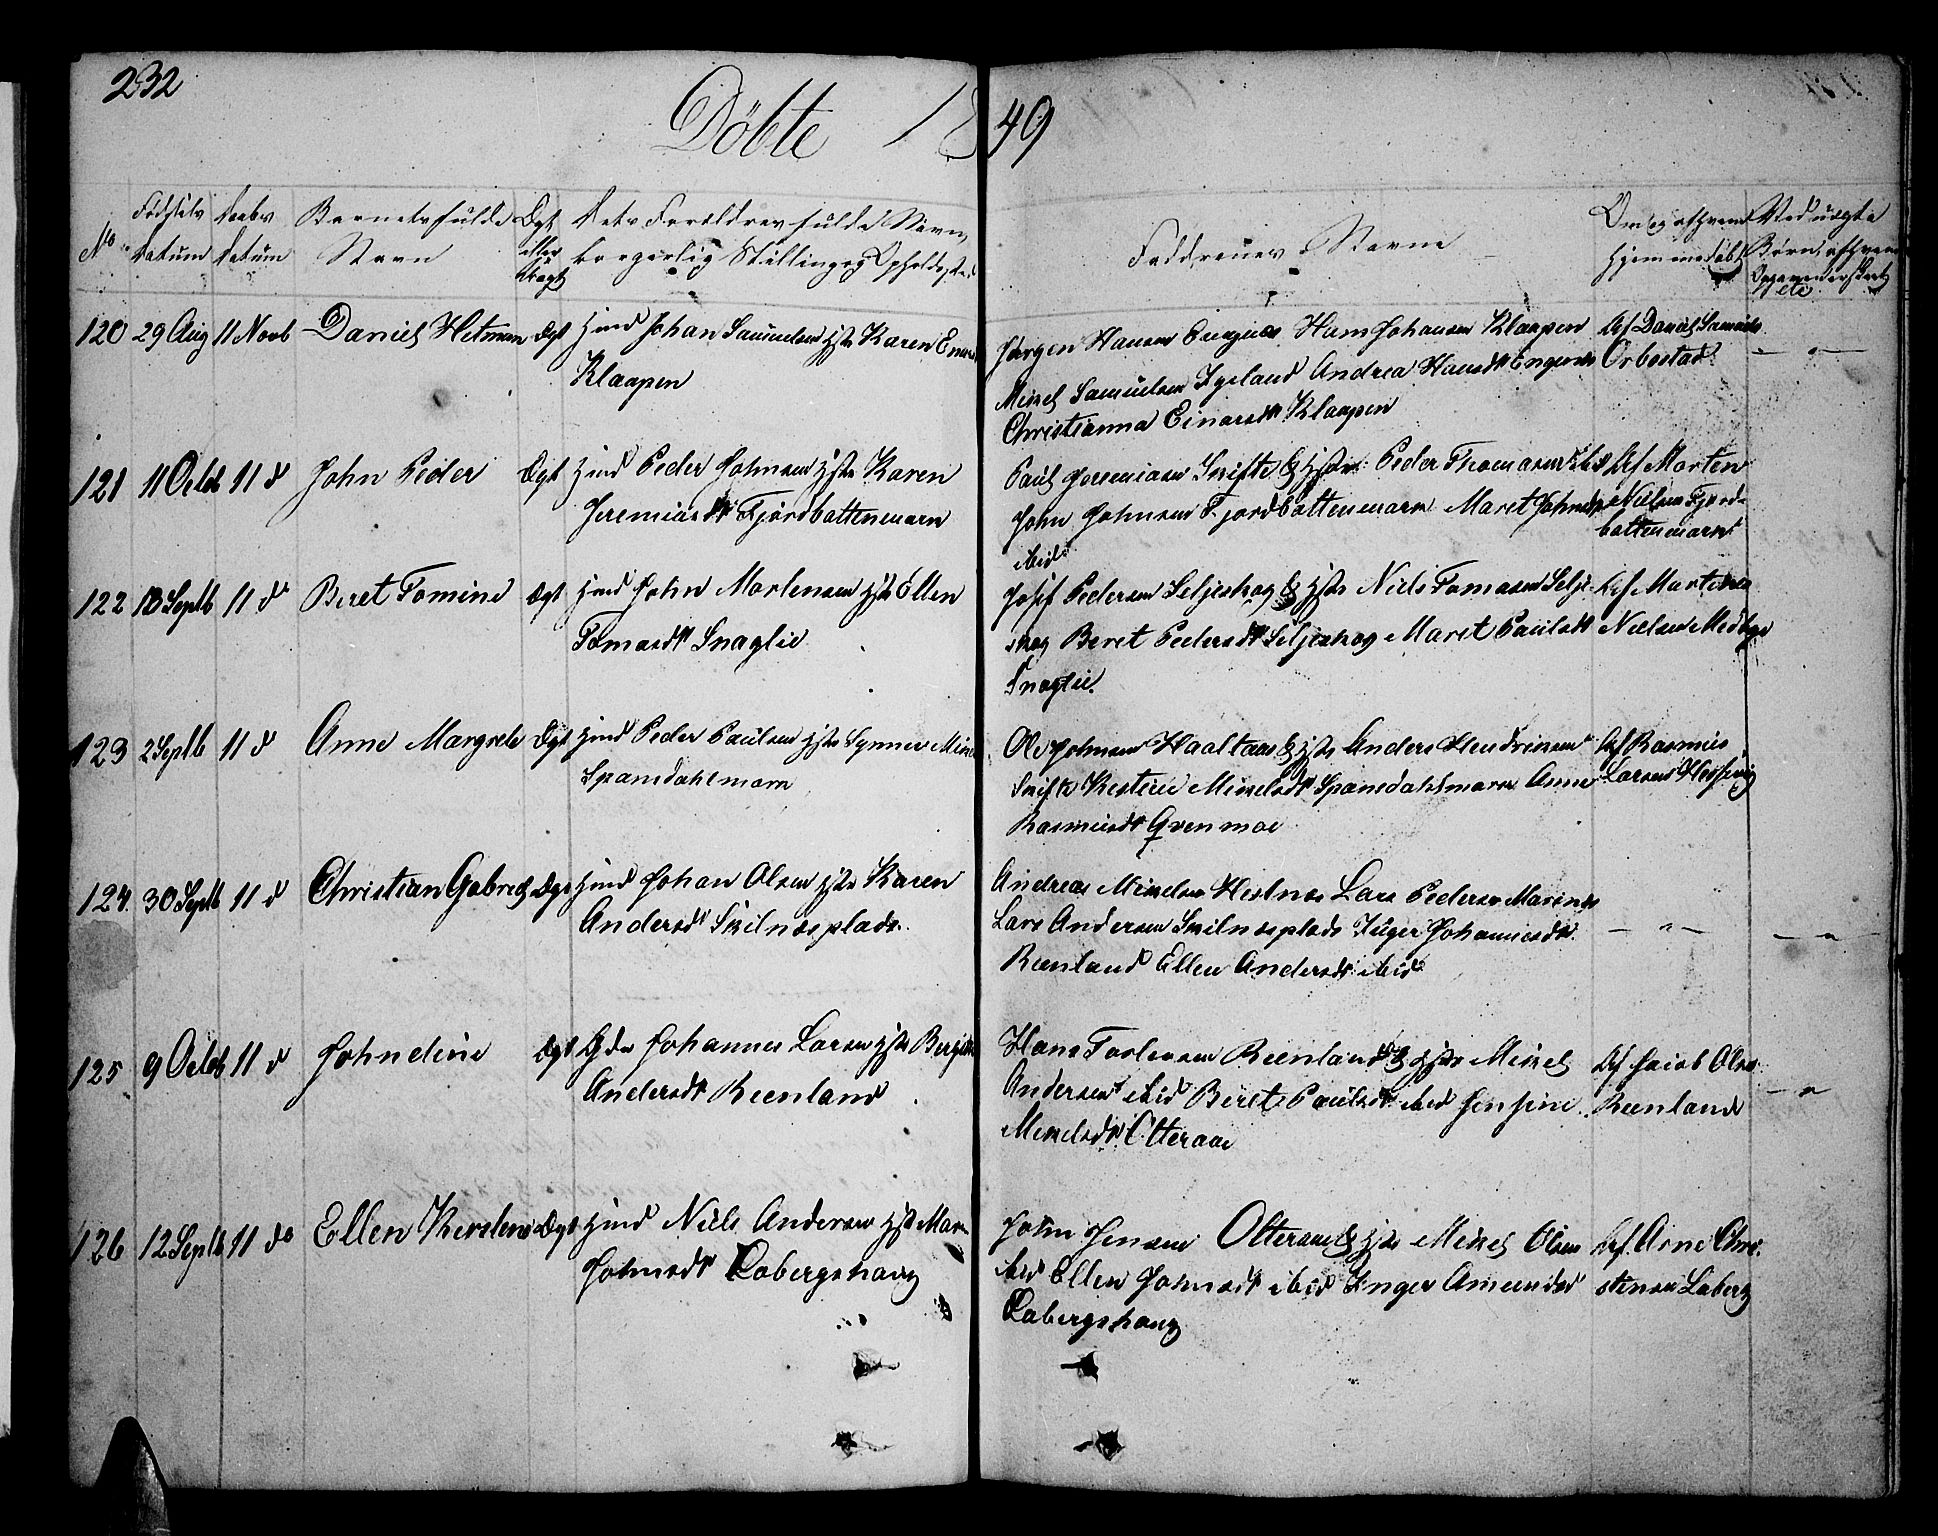 232
Döbte 1849
No Fødsels Datum Daabs Datum Barnets fulde Navn Ægt eller Uægt Dets Forældres fulde Navn, borgerlig Stilling og Opholdsted
Faddrenes Navne
Om og af hvem hjemmedøbt
Ved uægte Børn, af hvem etc
120 29 Aug 11 Novb Daniel Hetman Ægt Hmd Johan Samuelsen Hstr Karen
Klaapen
Jørgen Hansen Hans Johansen Klaapen
Mikel Samuelsen Andrea Hansdt Engenes
Christianna Einarsdt Klaapen
Af Daniel Samuels
Orbostad
— " —
121 11 Octb 11 d John Peder Ægt Hmd Peder Johnsen Hstr Karen
Jeremiasdt Fjordbottenmarn
Paul Jeremiasen Skifte & Hstr Peder Thomasen ibid
John Johnsen Fjordbottenmark Maret Johnsdt
ibid
Af Morten
Nielsen Fjord-
bottenmark
122 18 Septb 11 do Beret Tomine Ægt Hmd John Mortensen Hstr Ellen
Tomasdt Snaglie
Josef Pedersen Seljeskog & Hstr Niels Tomasen Selje-
skog Beret Pedersdt Seljeskog Maret Paulsdt
Snaglie.
Af Martinus
Nielsen Medbye
123 2 Septb 11 d Anne Margrete Ægt Hmd Peder Paulsen Hstr Synnev
Spansdahlmarn
Ole Johnsen & Hstr Anders Hendriksen
Skifte Kestine Mikelsdt Spansdahlmarn Anne
Rasmusdt Qvenmoe
Af Rasmus
Larsen
124. 30 Septb 11 d Christian Gabriel Ægt Hmd Johan Olsen Hstr Karen
Andersdt Skilnesplads.
Andreas Mikelsen Hestnes Lars Pedersen
Lars Andersen Skilnesplads Inger Johannesdt.
Reenland Ellen Andersdt ibid
— " —
— " —
125 9 Octb 11 d Johndine Ægt Johannes Larsen Hstr
Andersdt Reenland
Hans Reenland & Hstr Mikel
Andersen ibid Beret Paulsdt ibid Jensine
Mikelsdt Otteraae
Af Jacob Olsen
Reenland
— " —
126 12 Septb 11 do Ellen Kerstene Ægt Hmd Niels Andersen Hstr
Johnsdt Labergshaug
John Jensen Otteraae & Hstr Mikel Olsen
ibid Ellen Johnsdt ibid Inger Amundsd
Labergshaug
Af. Arne Chri-
stensen Laberg